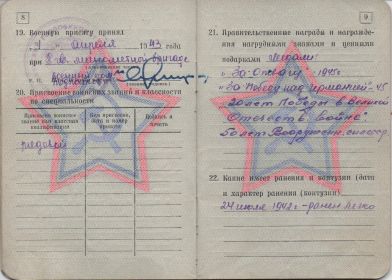 8
19. Военную присягу принял
" 1 " апреля 1943 года
при 8 миномётной бригаде
Военный
20. Присвоение воинских званий и классности
по специальности
Присвоено воинское
звание или классная
квалификация
Кем присвоено,
дата и номер
приказа
Должность и
печать
рядовой
9
21. Правительственные награды и награждения
нагрудными знаками и ценными
подарками Медали
"За Отвагу" 1945г
"За Победу над Германией"-45
20 лет Победы в Великой
Отечеств. Войне"
50 лет Вооружен. сил СССР
22. Какие имеет ранения и контузии (дата
и характер ранения (контузии)
24 июля 1942г - ранен легко